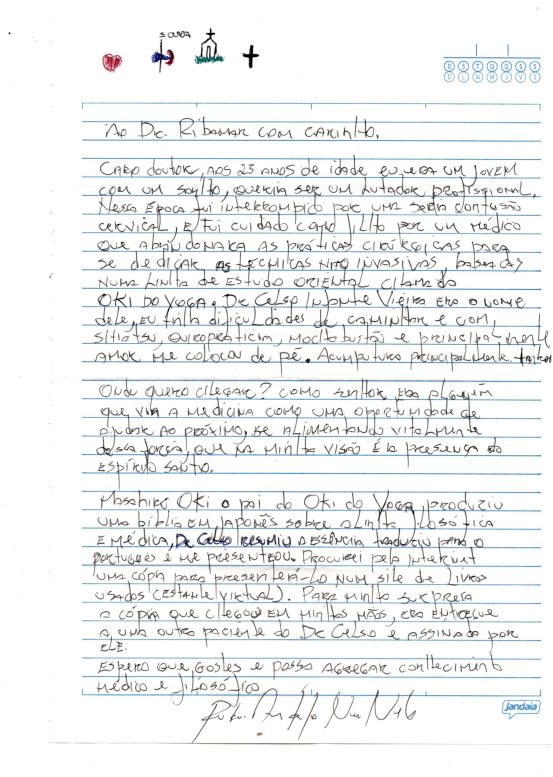 SAÚDE
D S T Q Q S S
D L M M J V S
Ao Dr. Ribamar com carinho.
Caro doutor, aos 23 anos de idade eu era um jovem
com um sonho, queria ser um lutador profissional.
Nessa época fui interrompido por uma séria contusão
cervical, e fui cuidado como filho por um médico
que abandonara as práticas cirúrgicas para
se dedicar as técnicas não invasivas, baseadas
numa linha de estudo oriental chamada
Oki do Yoga. Dr Celso Infante Vieira era o nome
dele, eu tinha dificuldades de caminhar e com
shiatsu, quiropraticia, mochabustão e principalmente
amor me colocou de pé. Acumputura principalmente
Onde quero chegar? Como senhor era alguém
que via a medicina como uma oportunidade de
ajudar ao próximo, se alimentando vitalmente
dessa força, que na minha visão é la presença do
Espírito Santo.
Masahiro Oki o pai do Oki do Yoga, produziu
uma bíblia em japonês sobre a linha filosófica
e médica, Dr Celso resumiu a essência traduziu para o
português e me presenteou. Procurei pela internet
uma cópia para presenteá-lo num site de livros
usados (estante virtual). Para minha surpresa
a cópia que chegou em minhas mãos, era entregue
a uma outra paciente do Dr Celso e assinado por
ele.
Espero que gostes e possa agregar conhecimento
médico e filosófico
jandaia